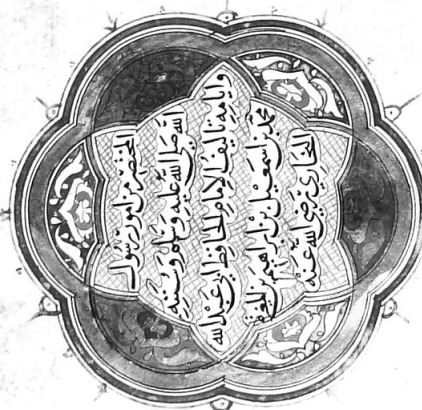 المختصر من امور رسول
الله صلى الله عليه وسلم وسننه
وايامه تاليف الامام الحافظ ابى عبد الله
محمد بن اسمعيل بن ابرهيم بن المغيرة
البخارى رضى الله عنه